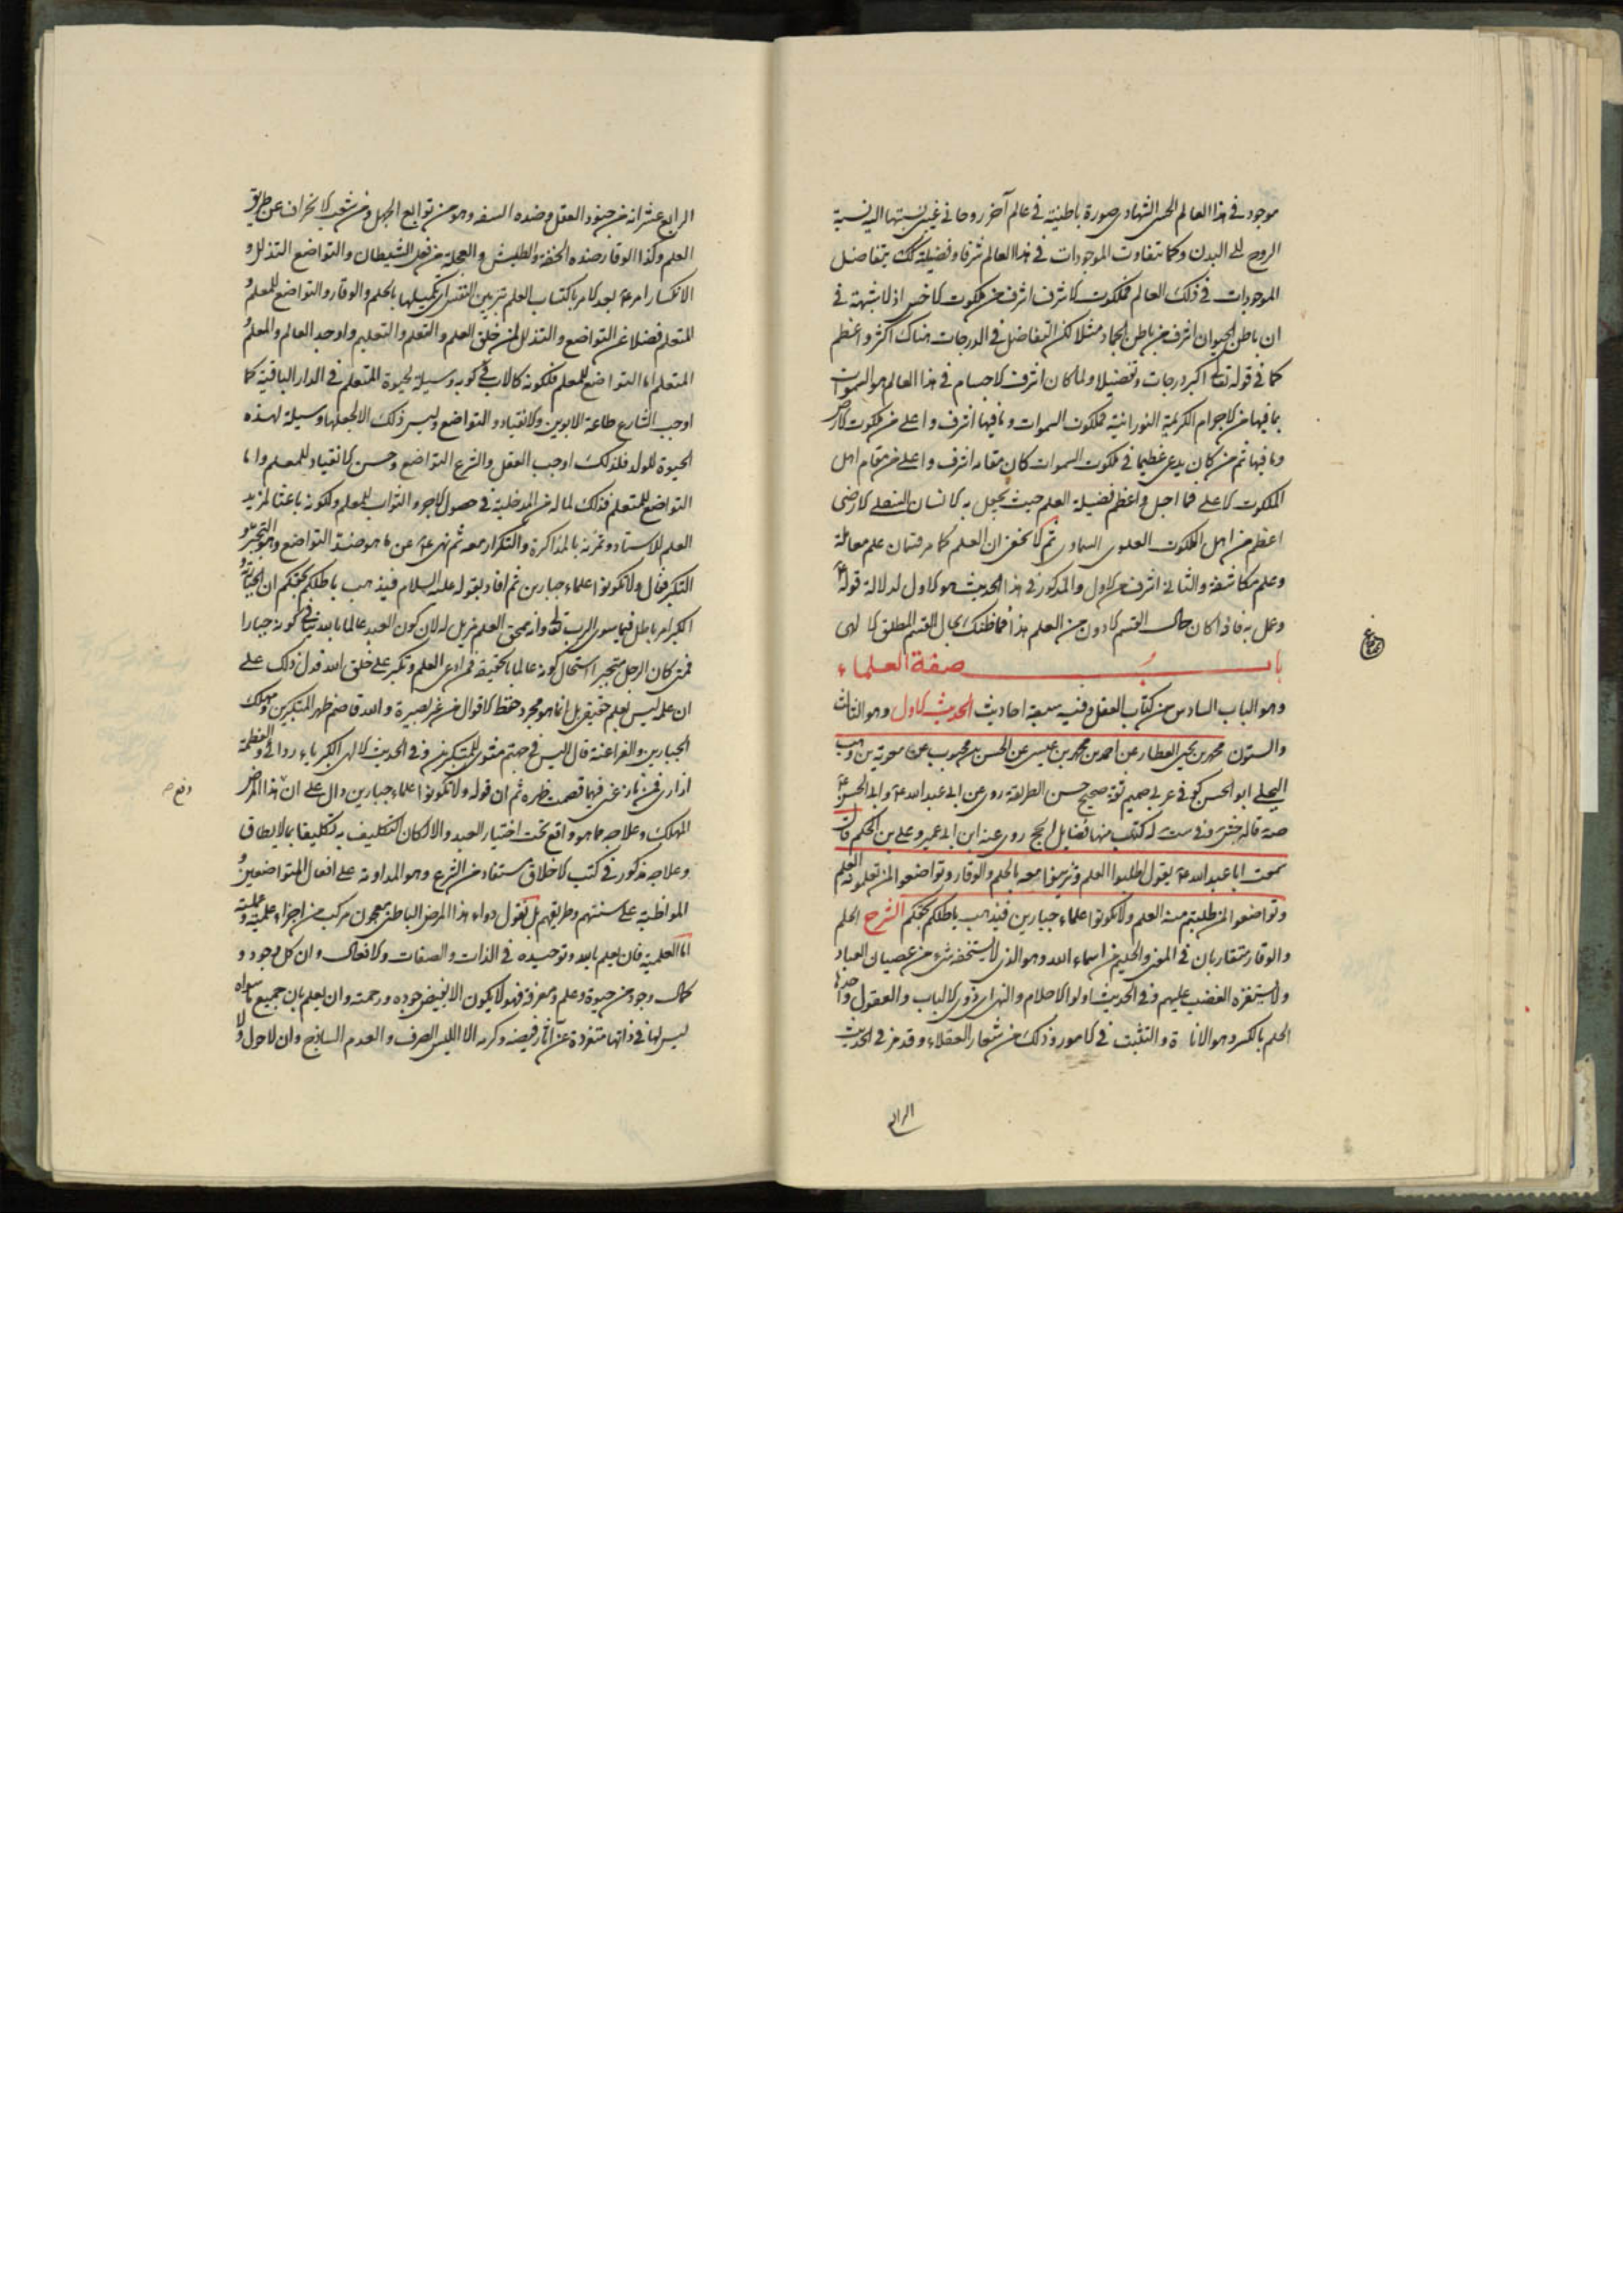 موجود فى هذا العالم الحسى الشهادى صورة باطنية فى عالم آخر روحانى غيبى نسبتها اليه نسبة
الروح الى البدن وكما تتفاوت الموجودات فى هذا العالم شرفا وفضيلة كك يتفاضل
الموجودات فى ذلك العالم فملكوت الاشرف اشرف من ملكوت الاخس اذ لا شبهة فى
ان باطن الحيوان اشرف من باطن الجماد مثلا لكن التفاضل فى الدرجات هناك اكثر واعظم
كما فى قوله تعالى اكبر درجات وتفضيلا ولما كان اشرف الاجسام فى هذا العالم هو السموات
بما فيها من الاجرام الكريمة النورانية فملكوت السموات وما فيها اشرف واعلى من ملكوت الارض
وما فيها ثم من كان يدعى عظيما فى ملكوت السموات كان مقامه اشرف واعلى من مقام اهل
الملكوت الاعلى فما اجل واعظم فضيلة العلم حيث يجعل به الانسان السفلى الارضى
اعظم من اهل الملكوت العلوى السماوى ثم لا يخفى ان العلم كما مر قسمان علم معاملة
وعلم مكاشفة والثانى اشرف من الاول والمذكور فى هذا الحديث هو الاول لدلالة قوله ع
وعمل به فاذا كان حال القسم الادون من العلم هذا فما ظنك بحال القسم المطلق الالهى
باب صفة العلماء
وهو الباب السادس من كتاب العقل وفيه سبعة احاديث الحديث الاول وهو الثالث
والستون محمد بن يحيى العطار عن احمد بن محمد بن عيسى عن الحسن بن محبوب عن معوية بن وهب
البجلى ابو الحسن كوفى عربى صميم ثقة صحيح حسن الطريقة روى عن ابى عبد الله ع وابى الحسن ع
صه قاله جش وفى ست له كتب منها فضايل الحج روى عنه ابن ابى عمير وعلى بن الحكم قال
سمعت ابا عبد الله ع يقول اطلبوا العلم وتزينوا معه بالحلم والوقار وتواضعوا لمن تعلمونه العلم
وتواضعوا لمن طلبتم منه العلم ولا تكونوا علماء جبارين فيذهب باطلكم بحقكم الشرح الحلم
والوقار متقاربان فى المعنى والحليم من اسماء الله وهو الذى لا يستخفه شىء من عصيان العباد
ولا يستفزه الغضب عليهم وفى الحديث اولوا الاحلام والنهى اى ذوى الالباب والعقول واحدها
الحلم بالكسر وهو الاناة والتثبت فى الامور وذلك من شعار العقلاء وقد مر فى الحديث
الرابع
الرابع عشر انه من جنود العقل وضده السفه وهو من توابع الجهل ومن شعب الانحراف عن طريق
العلم وكذا الوقار ضده الخفة والطيش والعجلة من فعل الشيطان والتواضع التذلل و
الانكسار امر ع بعد الامر باكتساب العلم بتزيين النفس اى تكميلها بالحلم والوقار والتواضع للمعلم و
المتعلم فضلا عن التواضع والتذلل لمن خلق العلم والتعلم والتعليم واوجد العالم والمعلم و
المتعلم اما التواضع للمعلم فلكونه كالاب فى كونه وسيلة لحيوة المتعلم فى الدار الباقية كما
اوجب الشارع طاعة الابوين والانقياد والتواضع وليس ذلك الا لجعلهما وسيلة لهذه
الحيوة للولد فلذلك اوجب العقل والشرع التواضع وحسن الانقياد للمعلم واما
التواضع للمتعلم فذلك لما له من المدخلية فى حصول الاجر والثواب للمعلم ولكونه باعثا لمزيد
العلم للاستاد وتمرنه بالمذاكرة والتكرار معه ثم نهى ع عن ما هو ضد التواضع وهو التجبر و
التكبر فقال ولا تكونوا علماء جبارين ثم افاد بقوله عليه السلام فيذهب باطلكم بحقكم ان
امر باطل فيما سوى الرب تعالى وانه يمحق العلم ويزيله لان كون العبد عالما بالله ينافى كونه جبارا
فمتى كان الرجل متجبرا استحال كونه عالما بالحقيقة فمن ادعى العلم وتكبر على خلق الله فدل ذلك على
ان علمه ليس بعلم حقيقى بل انما هو مجرد حفظ الاقوال من غير بصيرة والله قاصم ظهر المتكبرين ومهلك
الجبارين والفراعنة قال اليس فى جهنم مثوى للمتكبرين وفى الحديث الالهى الكبرياء ردائى والعظمة
ازارى فمن نازعنى فيهما قصمت ظهره ثم ان قوله ولا تكونوا علماء جبارين دال على ان هذا المرض
المهلك وعلاجه مما هو واقع تحت اختيار العبد والا لكان التكليف به تكليفا بما لا يطاق
وعلاجه مذكور فى كتب الاخلاق مستفاد من الشرع وهو المداومة على افعال المتواضعين و
المواظبة على سنتهم وطريقهم بل نقول دواء هذا المرض الباطنى معجون مركب من اجزاء علمية وعملية
اما العلمية فان يعلم بالله وتوحيده فى الذات والصفات والافعال وان كل موجود و
كمال وجود من حيوة وعلم ومعرفة فهو لا يكون الا بفيض جوده ورحمته وان يعلم بان جميع ما سواه
ليس لها فى ذاتها متفردة عن آثار فيضه وكرمه الا الليس الصرف والعدم الساذج وان لا حول ولا